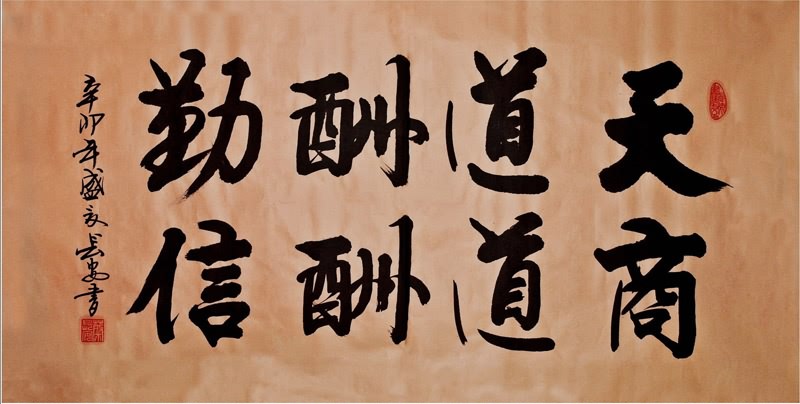 天道酬勤
商道酬信
辛卯年盛夏長安書